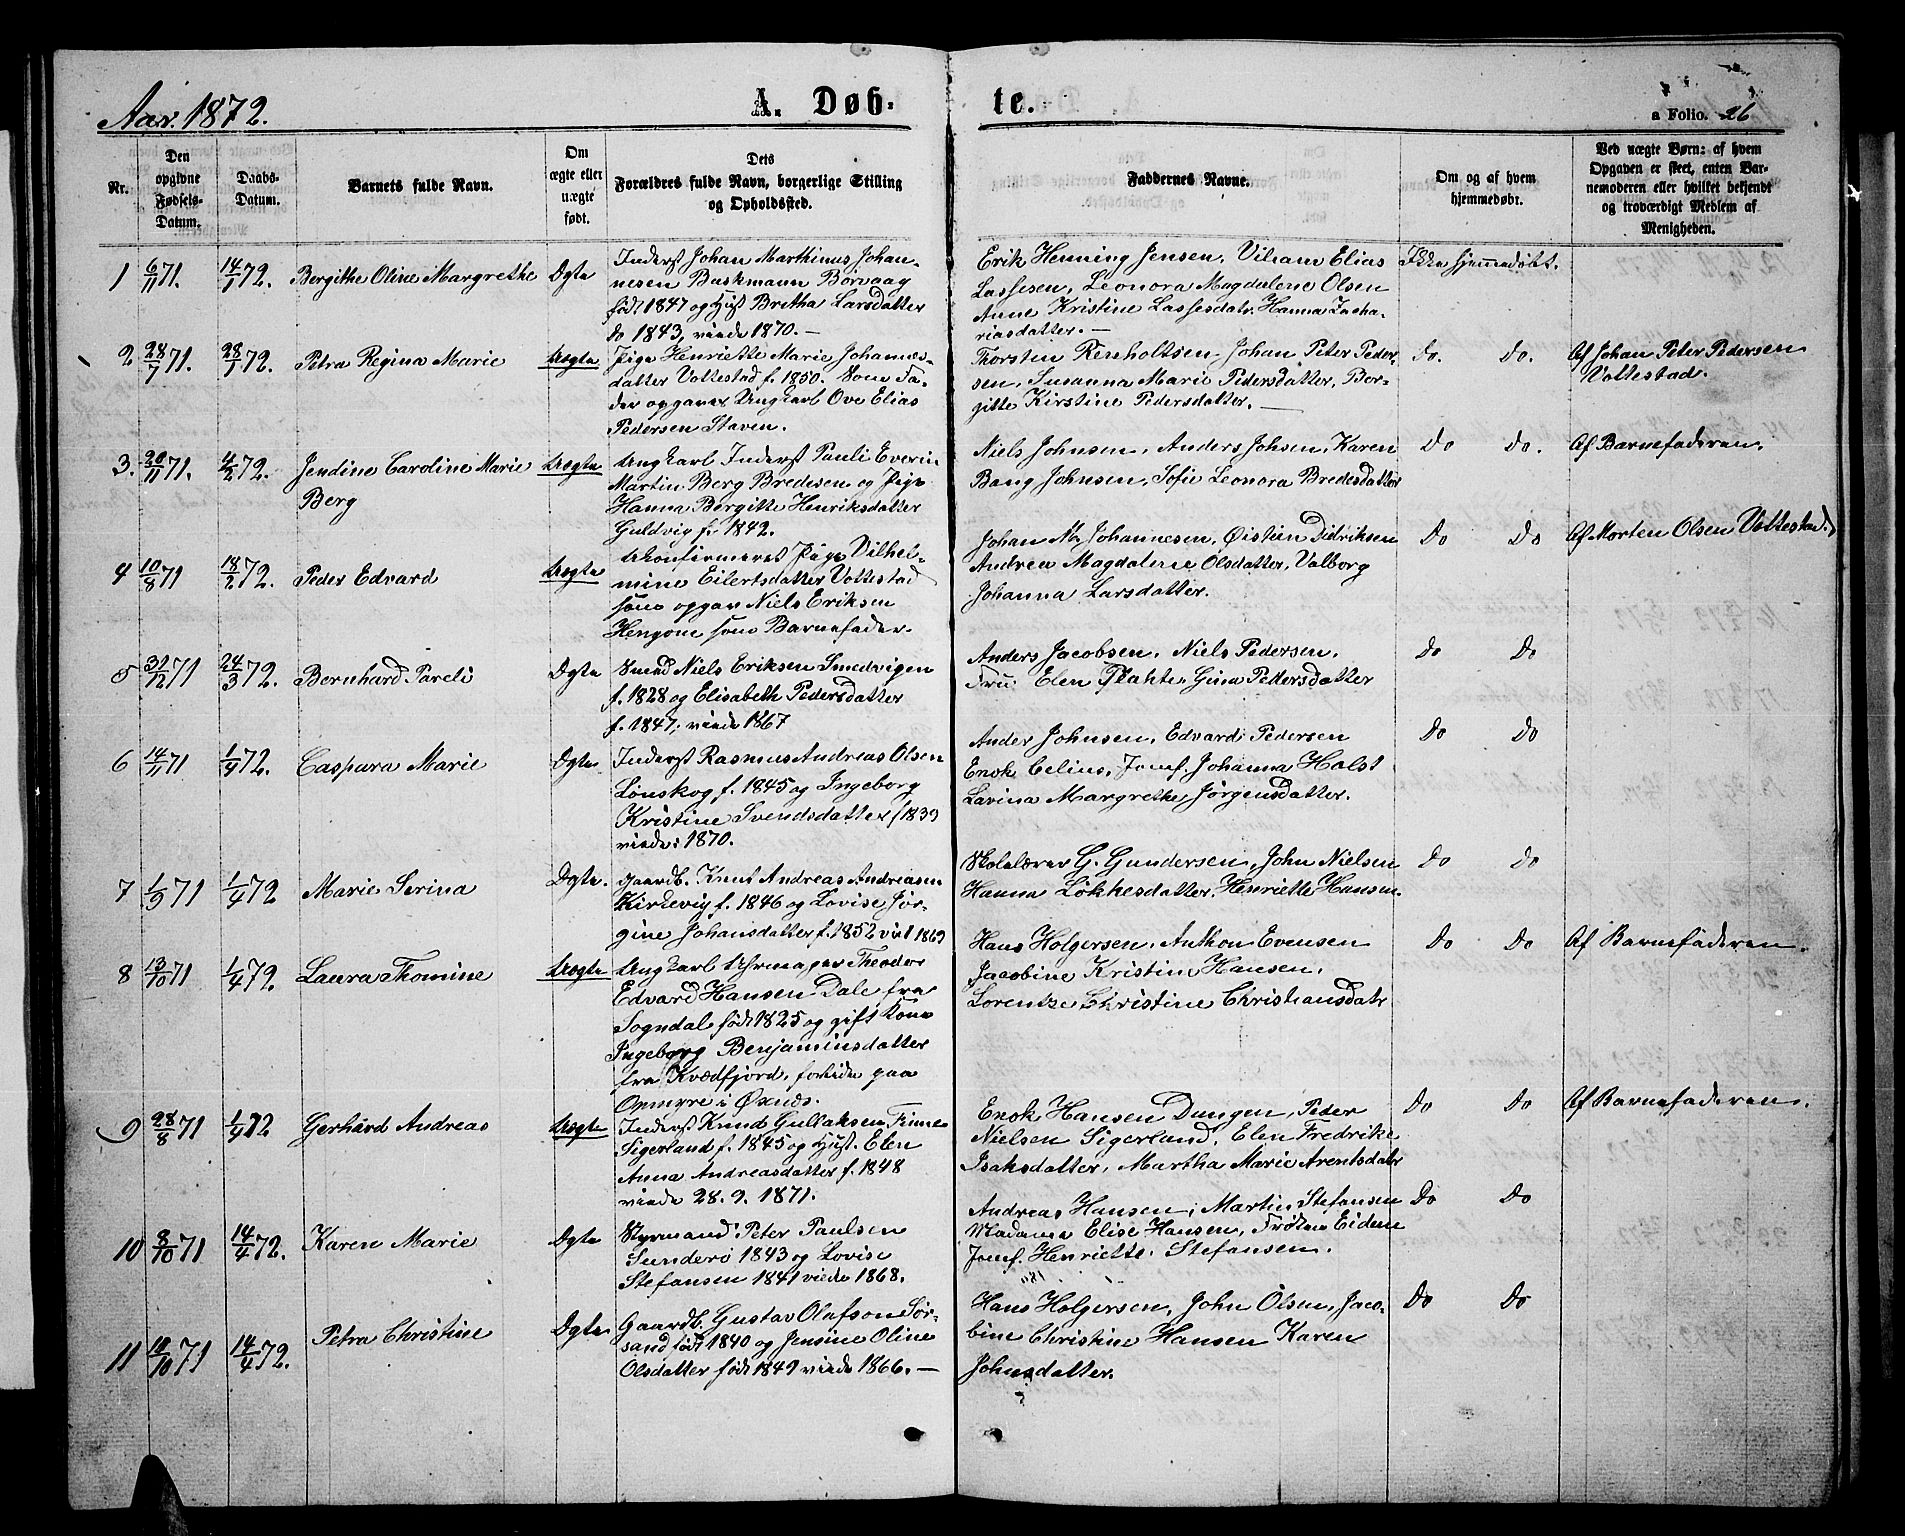 Aar. 1872.
A. Døbte.
a Folio. 26
Nr.
Den opgivne Fødsels-Datum.
Daabs-Datum.
Barnets fulde Navn.
Om ægte eller uægte født.
Dets Forældres fulde Navn, borgerlige Stilling og Opholdssted.
Faddernes Navne.
Om og af hvem hjemmedøbt.
Ved uægte Børn: af hvem Opgaven er skeet, enten Barnemoderen eller hvilket bekjendt og troværdigt Medlem af Menigheden.
1 6/11 71. 14/1 72. Bergithe Oline Margrethe Ægte
Inderst Johan Marthinus Johan-
nesen Buskmann Börvaag
født 1847 og Hust Britha Larsdatter
do 1843, viede 1870. —
Erik Henning Jensen, Viliam Elias
Lassesen, Leonora Magdalene Olsen
Anne Kristine Lassesdatr. Hanna Zacha-
riasdatter. —
Ikke hjemmedøbt.
2 28/7 71. 28/1 72. Petra Regina Marie Uægte
Pige Henriette Marie Johannes-
datter Vottestad f. 1850. Som Fa-
der opgaves Ungkarl Ove Elias
Pedersen Staven.
Thorstin Reinholtsen, Johan Peter Peder-
sen, Susanna Marie Pedersdatter, Ber-
gitte Kirstine Pedersdatter. —
Do. Do.
Af Johan Peter Pedersen
Vottestad.
3. 20/11 71. 4/2 72. Jendine Caroline Marie
Berg
Uægte
Ungkarl Inderst Pauli Everin
Martin Berg Bredesen og Pige
Hanna Bergitte Henriksdatter
Guldvig f. 1842.
Niels Johnsen, Anders Johsen, Karen
Bang Johnsen, Sofie Leonora Bredesdatter
Do Do.
Af Barnefaderen.
4 10/8 71 18/2 72. Peder Edvard Uægte
Ukonfirmeret Pige Vilhel-
mine Eilertsdatter Vottestad
som opgav Niels Eriksen
Hengone som Barnefader.
Johan M. Johannesen, Øistien Didriksen
Andrea Magdalene Olsdatter, Valborg
Johanna Larsdatter.
Do Do
Af Morten Olsen Vottestad.
5 31/12 71 24/3 72. Bernhard Pareli Ægte
Smed Niels Eriksen Smedvigen
f. 1828 og Elisabeth Pedersdatter
f. 1847, viede 1867
Anders Jacobsen, Niels Pedersen,
Fru Elen Plahte, Gina Pedersdatter
Do Do
6 14/11 71 1/4 72. Caspara Marie Ægte
Inderst Rasmus Andreas Olsen
Lönskog f. 1845 og Ingeborg
Kristine Svendsdatter f 1839
viede: 1870.
Ander Johnsen, Edvard Pedersen
Enok Celius, Jomf. Johanna Holst
Lavina Margrethe Jörgensdatter.
Do Do
7 1/9 71 1/4 72 Marie Serina Ægte.
Gaardb. Knut Andreas Andreasen
Kirkevig f. 1846 og Lovise Jør-
gine Johansdatter f. 1852 vied 1869
Skolelærer G. Gundersen, John Nielsen
Hanna Lökkesdatter, Henriette Hansen.
Do Do
8 13/10 71 1/4 72. Laura Thomine Uægte
Ungkarl Uhrmager Theodor
Edvard Hansen Dale fra
Sogndal født 1825 og gift Kone
Ingeborg Benjaminsdatter
fra Kvædfjord, forbidn paa
Opmyre i Øxnes.
Hans Holgersen, Anthon Evensen
Jacobine Kristine Hansen,
Lorentze Christine Christiansdatr
Do Do
Af Barnefaderen.
9 28/8 71 1/4 72 Gerhard Andreas Uægte
Inderst Knud Gullaksen Finne
Sigerland f. 1845 og Hust. Elen
Anna Andreasdatter f. 1848
viede 28. 9. 1871.
Enok Hansen Dungen, Peder
Nielsen Sigerland, Elen Fredrike
Isaksdatter, Martha Marie Arentsdatr
Do Do
Af Barnefaderen.
10 8/10 71 14/4 72. Karen Marie Ægte
Styrmand Peter Paulsen
Sunderö 1843 og Lovise
Stefansen 1841 viede 1868.
Andreas Hansen, Martin Stefansen
Madame Elise Hansen, Frøken Eidem
Jomf. Henriette Stefansen.
Do Do
11 18/10 71 14/4 72. Petra Christine Ægte
Gaardb. Gustav Olafson Sør-
sand født 1840 og Jensine Oline
Olsdatter født 1849 viede 1866. —
Hans Holgersen, John Olsen, Jaco-
bine Christine Hansen Karen
Johnsdatter.
Do Do